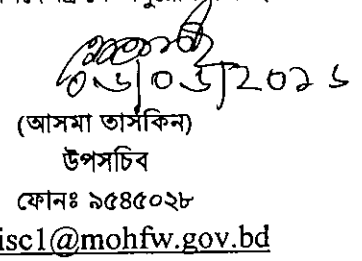 ০৬/০৬/২০১৬
(আসমা তাসকিন)
উপসচিব
ফোনঃ ৯৫৪৫০২৮
isc1@mohfw.gov.bd